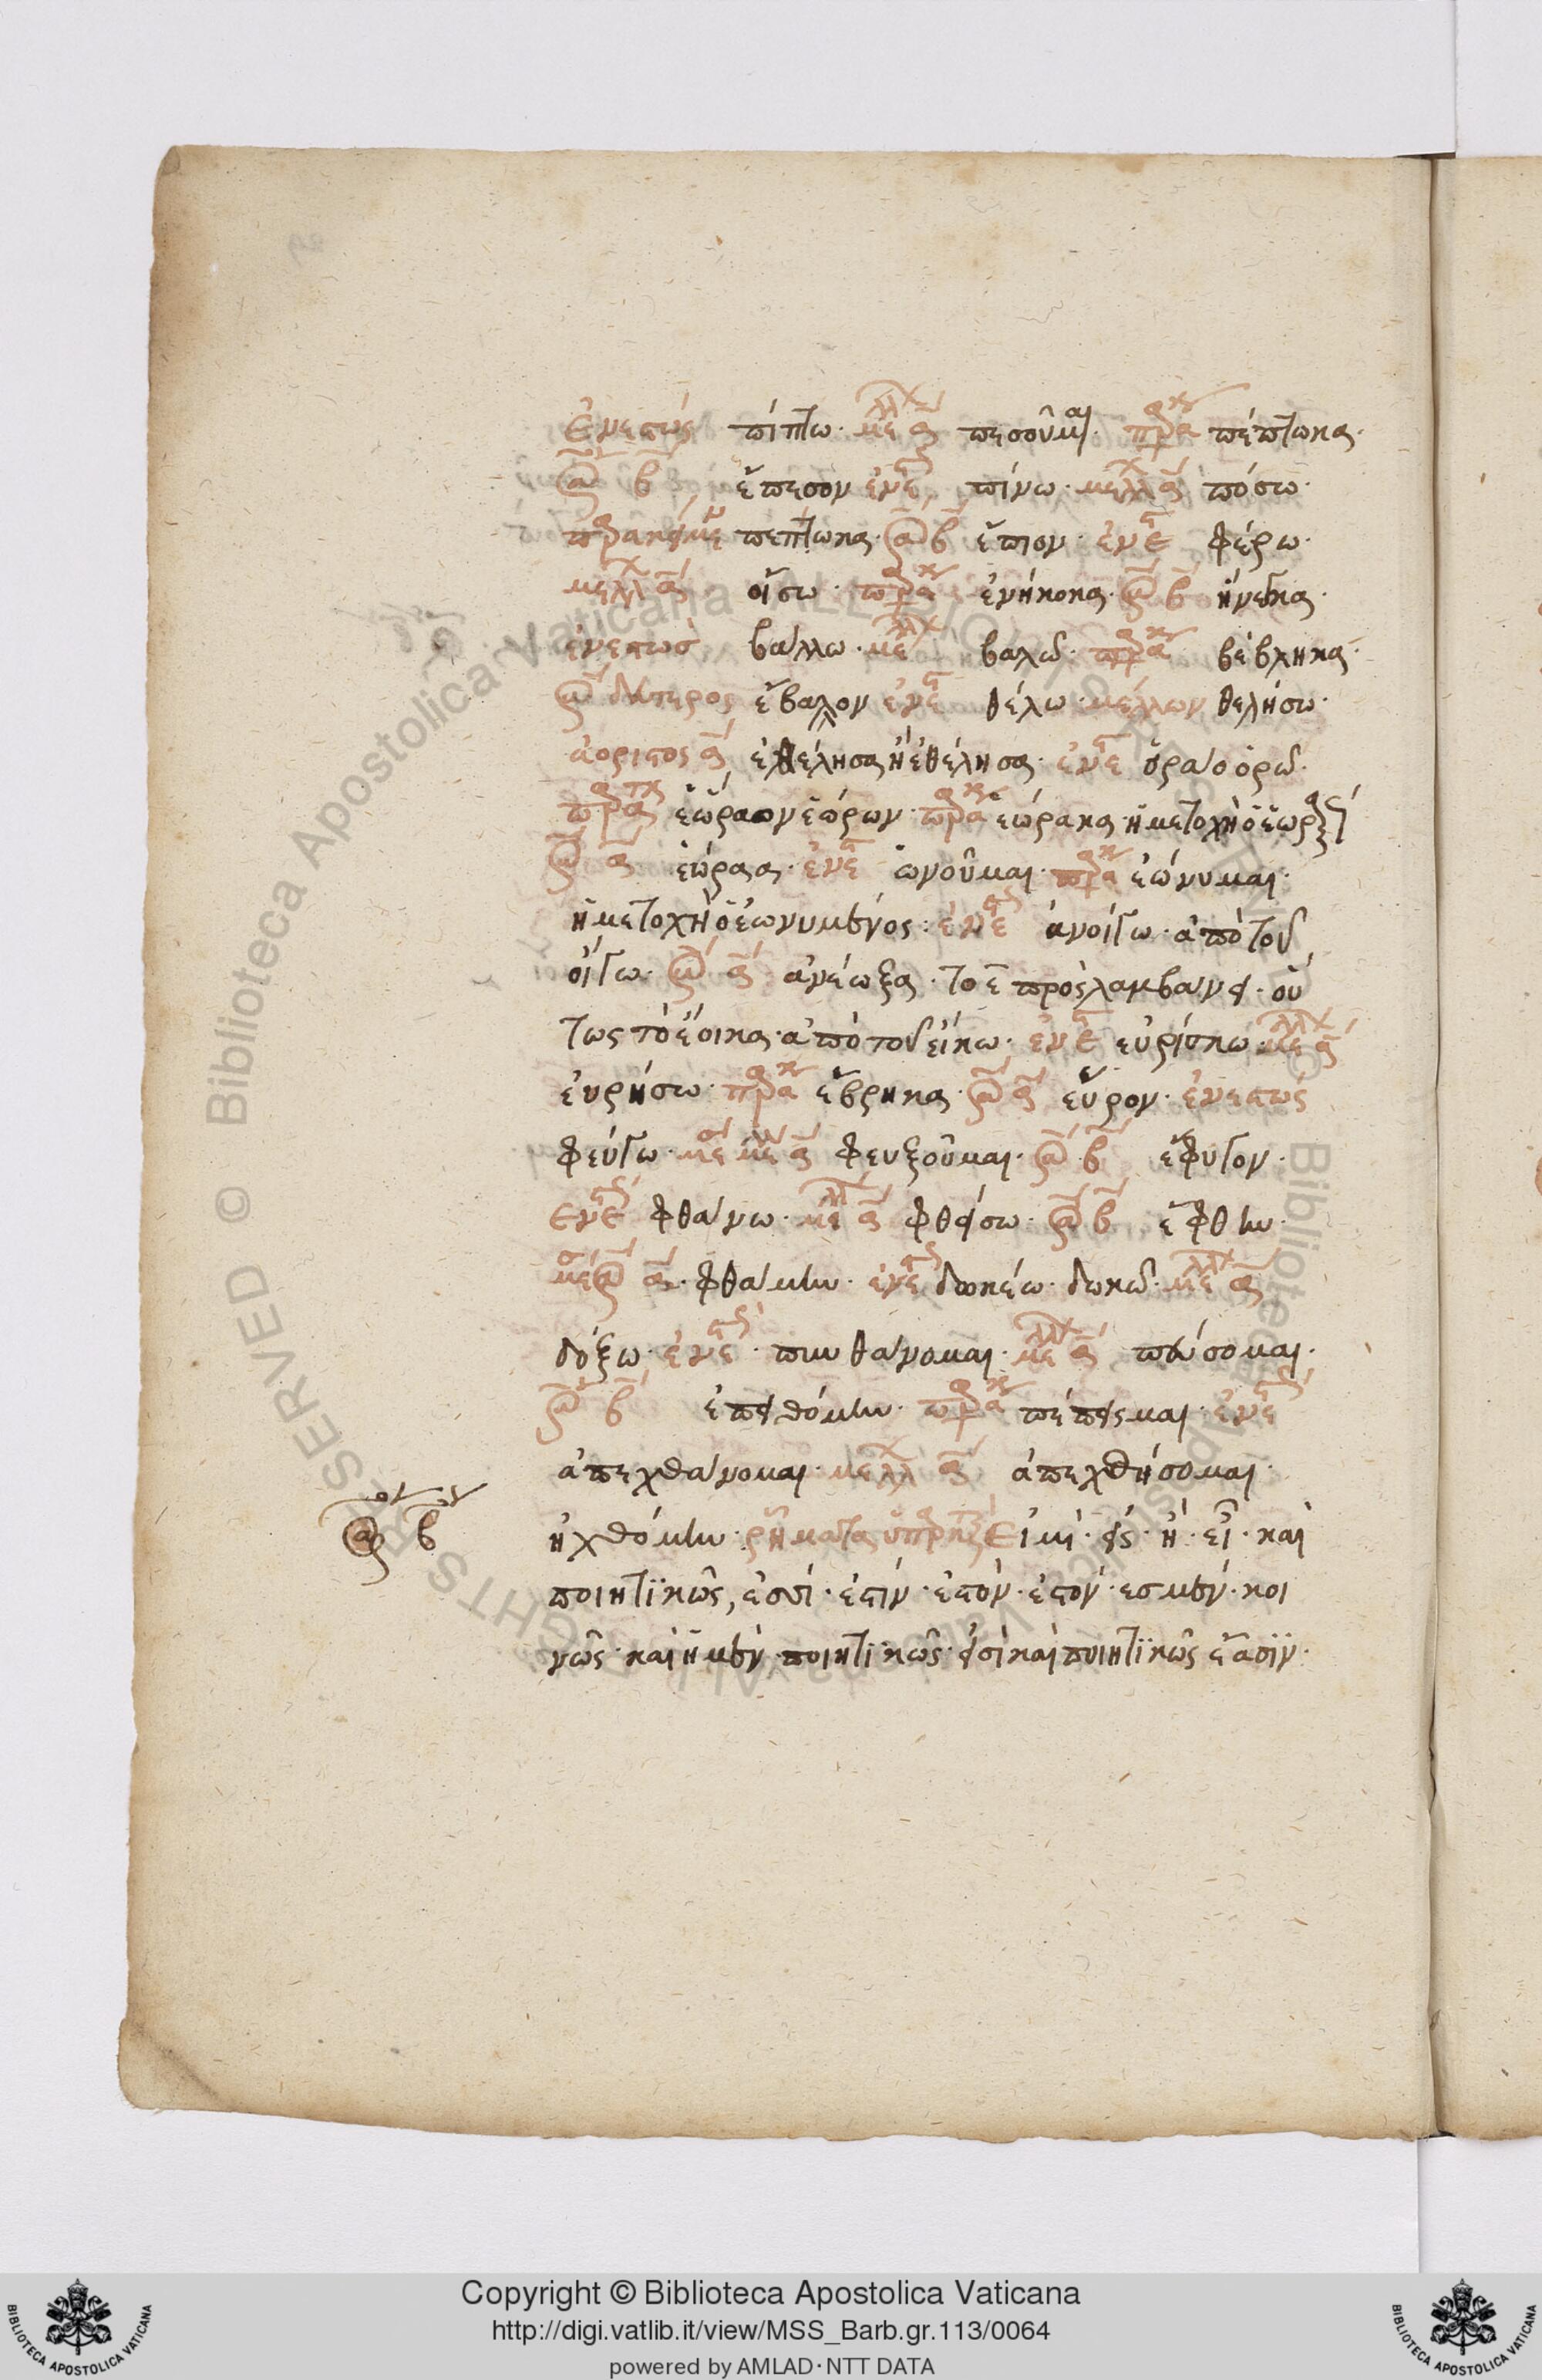 ἐνεστώς πίπτω· μελλ α πεσοῦμαι· παρα πέπτωκα·
αορ β ἔπεσον ἐνε πίνω· μελλ α πόσω·
παρακείμε πεπτωκα· αορ β ἔπιον· ἐνε φέρω·
μελλ α οἴσω· παρα ἐνήκοκα· αορ β ἤνεγκα·
ἐνεστωσ βάλλω· με βαλῶ· παρα βέβληκα·
αορ δεύτερος ἔβαλλον ἐνε θέλω· μέλλων θελήσω·
ἀόριστος α ἐθέλησα ἢ ἐθέλησα· ἐνε ὁράω ὁρῶ·
παρα ἑώραον ἑώρων· παρα εώρακα· ἡ μετοχὴ ὁ ἑωρ
αορ α ἑώρασα· ἐνε ὠνοῦμαι· παρα ἐώνυμαι·
ἡ μετοχὴ ὁ ἐωνυμένος· ἐνε ἀνοίγω· ἀπὸ τοῦ
οἴγω· αορ α ἀνέωξα· το ε προσλαμβάνει· οὕ
τως τὸ ἔοικα· ἀπὸ τοῦ εἴκω· ἐνε εὐρίσκω· με α
ἐυρήσω· παρα εὕρηκα· αορ α εὗρον· ἐνεστώς
φεύγω· με με α φευξοῦμαι· αορ β ἔφυγον·
ενε φθάνω· με α φθάσω· αορ β ἔφθην·
με αορ α· φθάμην· ἐνε δοκέω· δοκῶ· με α
δόξω· ἐνε· πυνθάνομαι· με α πεύσομαι·
αορ β ἐπυθόμην· παρα πέπυσμαι· ἐνε
ἀπεχθάνομαι· μελλ α ἀπεχθήσομαι·
αορ β ἠχθόμην· ῥήματα Εἰμὶ· εἶς· ἢ· εἶ· καὶ
ποιητϊκῶς, ἐσσί· ἐστίν· ἐστόν· ἐστόν· εσμέν· κοι
νῶς· καὶ ἡμέν ποιητϊκῶς· εἰσὶ καὶ ποιητϊκῶς ἔασϊν·
Copyright © Biblioteca Apostolica Vaticana
http://digi.vatlib.it/view/MSS_Barb.gr.113/0064
powered by AMLAD·NTT DATA
BIBLIOTECA APOSTOLICA VATICANA
BIBLIOTECA APOSTOLICA VATICANA